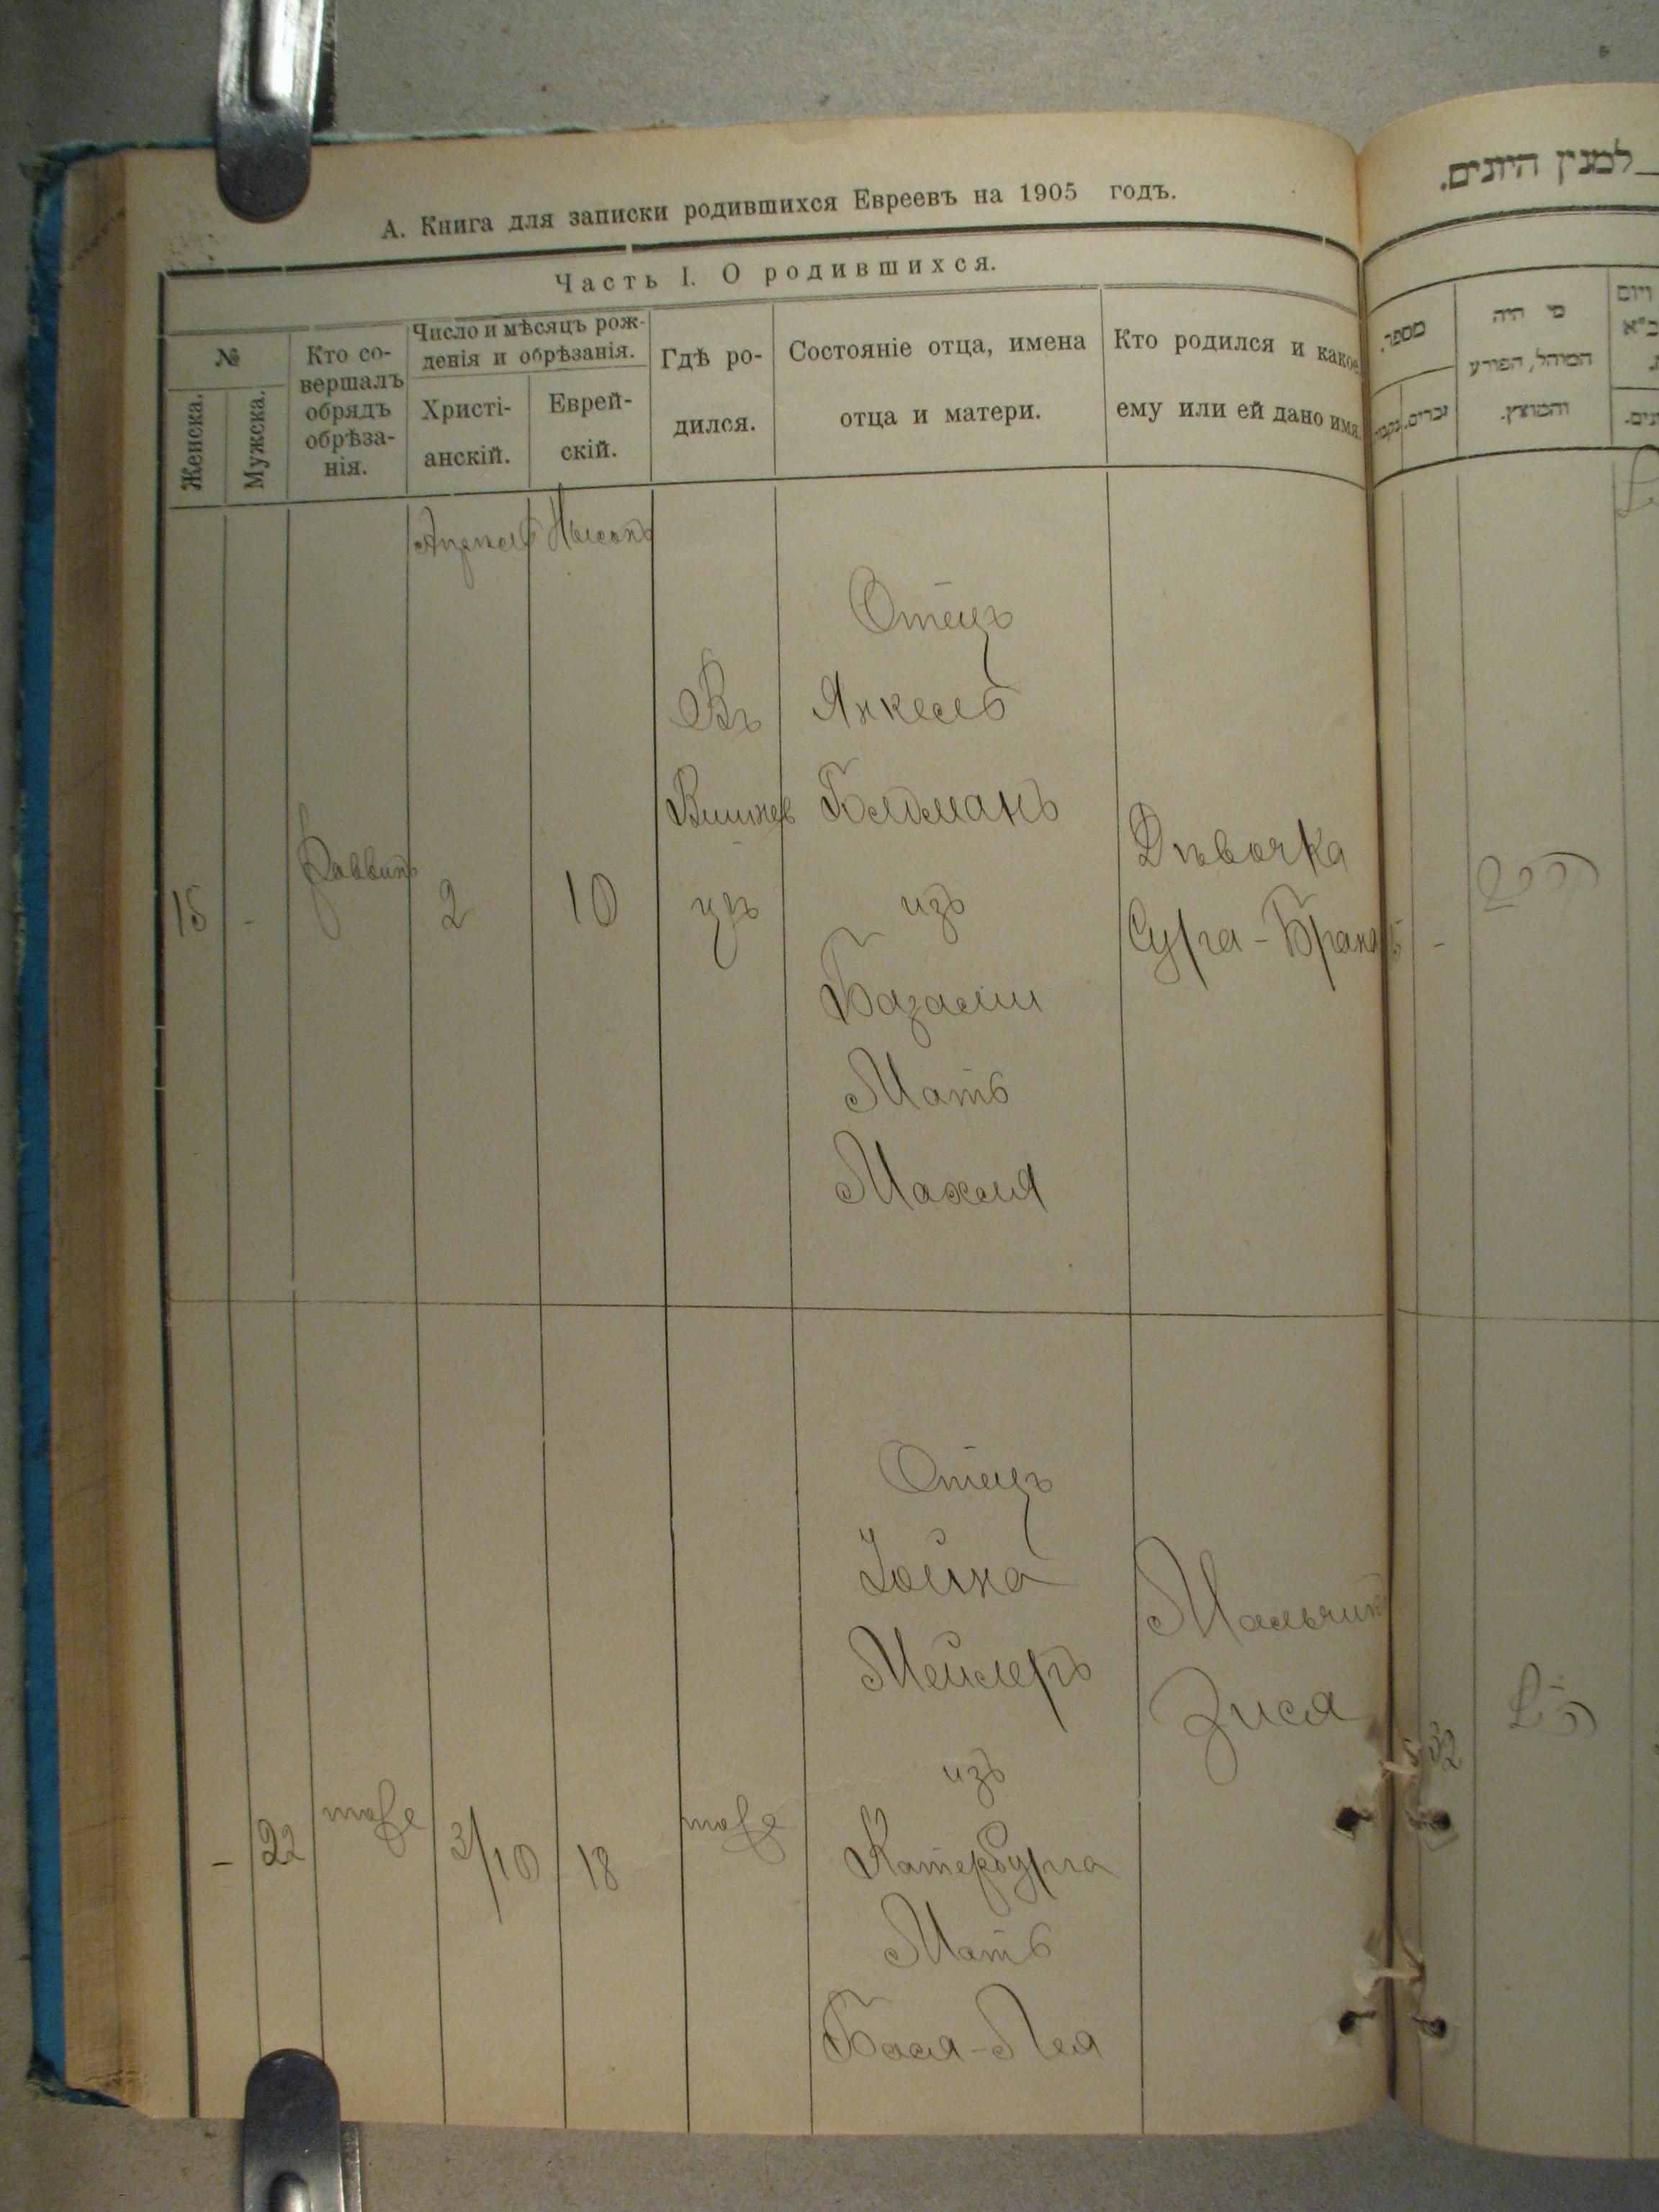 А. Книга для записки родившихся Евреевъ на 1905 годъ.
Часть I. О родившихся.
№
Женска.
Мужска.
Кто со-
вершалъ
обрядъ
обрѣза-
нія.
Число и мѣсяцъ рож-
денія и обрѣзанія.
Христі-
анскій.
Еврей-
скій.
Гдѣ ро-
дился.
Состояніе отца, имена
отца и матери.
Кто родился и какое
ему или ей дано имя.
Апрель Нысонъ
15
-
Раввинъ
2
10
Въ
Вишнев
цѣ
Отецъ
Янкель
Гольдманъ
из
Базаліи
Мать
Махля
Дѣвочка
Сура-Брана
-
22
тоже
3/10
18
тоже
Отецъ
Іойна
Мейлеръ
изъ
Катербурга
Мать
Бася-Лея
Мальчикъ
Зися
למנין היונים.
מספר.
זכרים.
מי היה
המוהל, הפורע
והמוצץ.
-